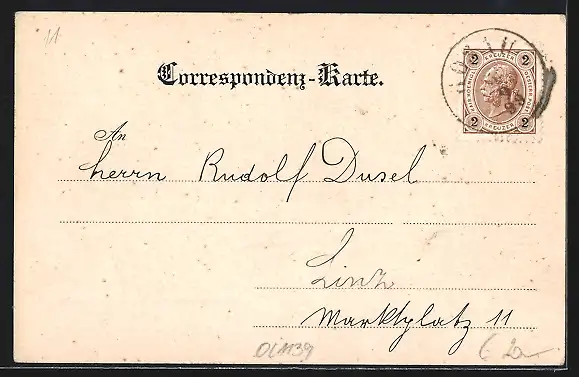 11
Correspondenz-Karte.
2 KREUZER 2
2 KREUZER 2
An
Herrn Rudolf Dusel
Linz
Marktplatz 11
OL1139